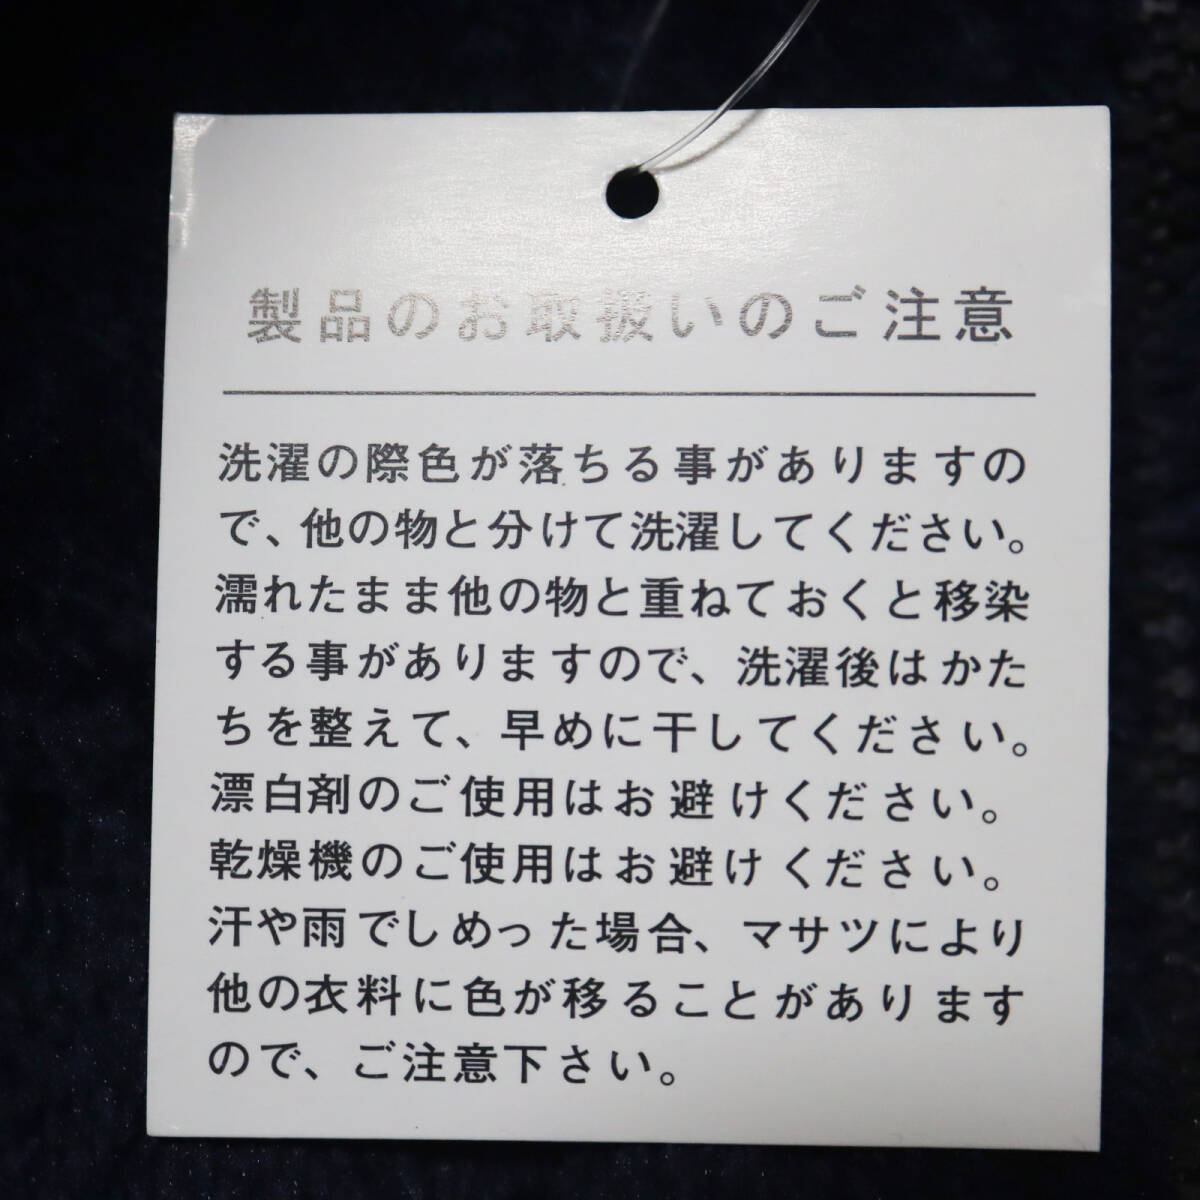 製品のお取扱いのご注意
洗濯の際色が落ちる事がありますの
で、他の物と分けて洗濯してください。
濡れたまま他の物と重ねておくと移染
する事がありますので、洗濯後はかた
ちを整えて、早めに干してください。
漂白剤のご使用はお避けください。
乾燥機のご使用はお避けください。
汗や雨でしめった場合、マサツにより
他の衣料に色が移ることがあります
ので、ご注意下さい。